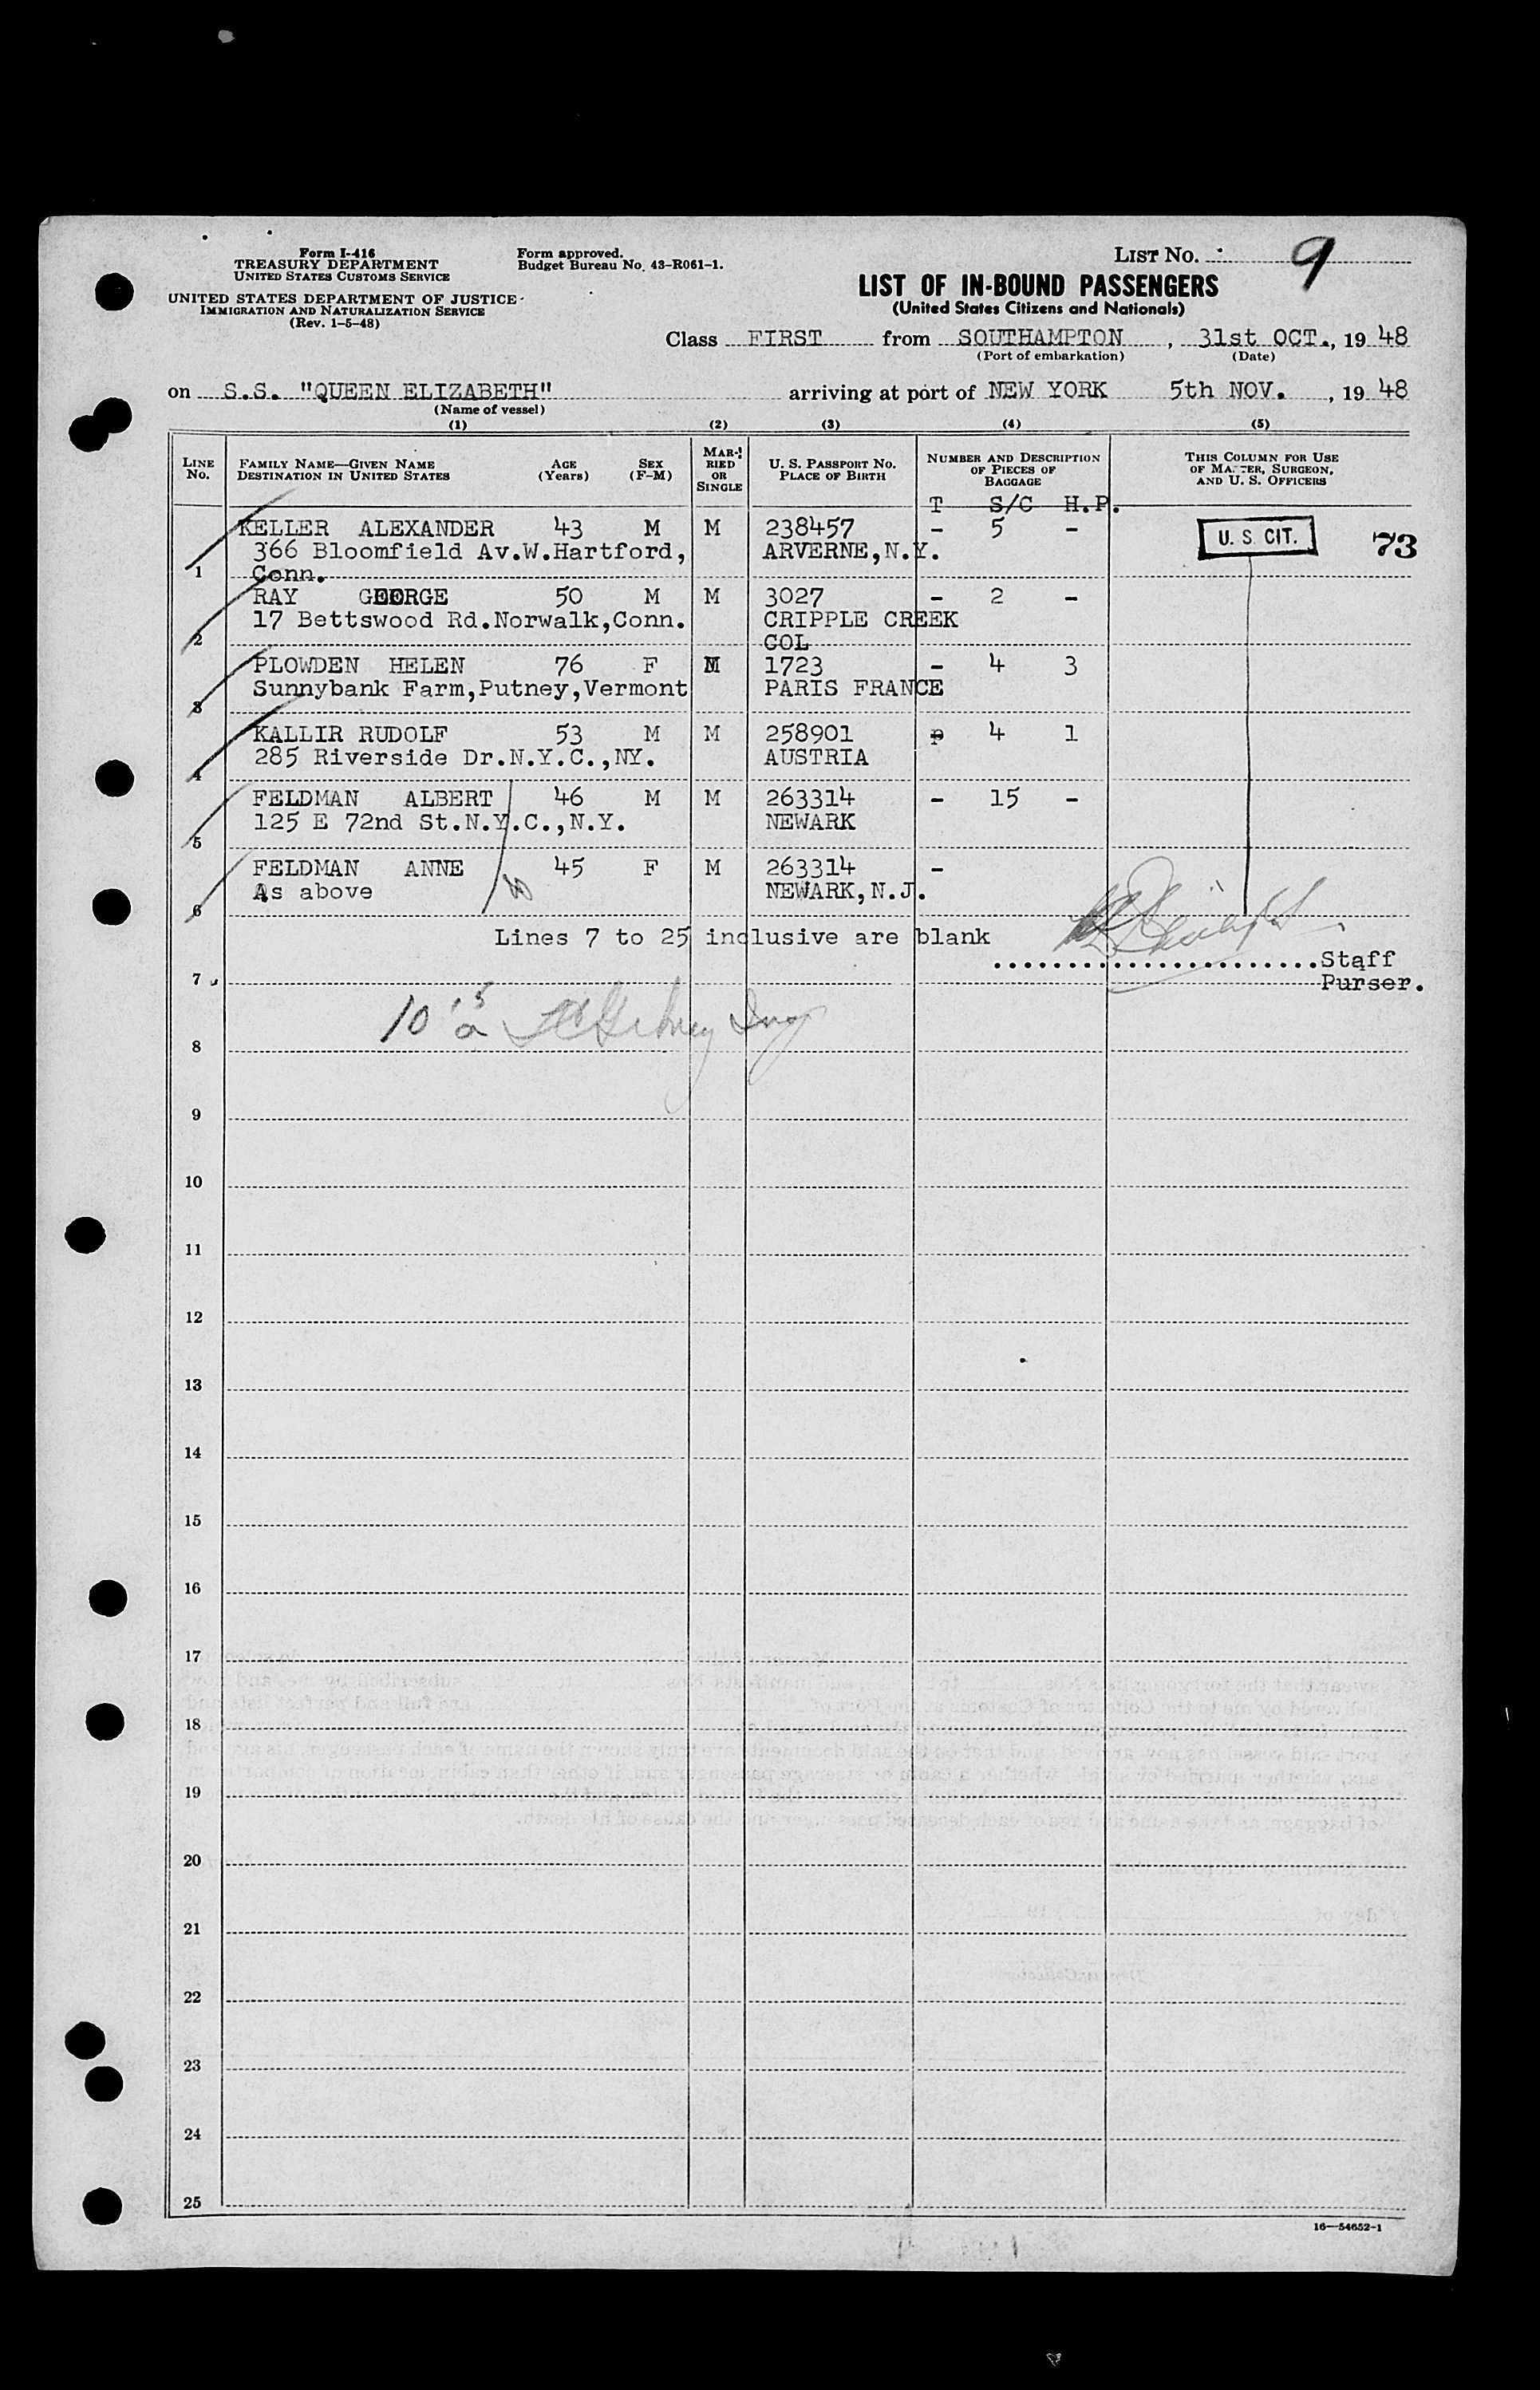 Form I-416
TREASURY DEPARTMENT
UNITED STATES CUSTOMS SERVICE
UNITED STATES DEPARTMENT OF JUSTICE
IMMIGRATION AND NATURALIZATION SERVICE
(Rev. 1-5-48)
Form approved.
Budget Bureau No. 43-R061-1.
LIST No. 9
LIST OF IN-BOUND PASSENGERS
(United States Citizens and Nationals)
Class FIRST from SOUTHAMPTON, 31st OCT., 19 48
(Port of embarkation) (Date)
on S.S. "QUEEN ELIZABETH" arriving at port of NEW YORK 5th NOV., 19 48
(Name of vessel)
(1) (2) (3) (4) (5)
LINE No.
FAMILY NAME—GIVEN NAME
DESTINATION IN UNITED STATES
AGE (Years)
SEX (F-M)
MARRIED OR SINGLE
U. S. PASSPORT NO.
PLACE OF BIRTH
NUMBER AND DESCRIPTION OF PIECES OF BAGGAGE
THIS COLUMN FOR USE OF MASTER, SURGEON, AND U. S. OFFICERS
T S/C H.P.
KELLER ALEXANDER 43 M M 238457 - 5 - U. S. CIT. 73
366 Bloomfield Av.W.Hartford, ARVERNE,N.Y.
1 Conn.
RAY GEORGE 50 M M 3027 - 2 -
17 Bettswood Rd.Norwalk,Conn. CRIPPLE CREEK
2 COL
PLOWDEN HELEN 76 F M 1723 - 4 3
Sunnybank Farm,Putney,Vermont PARIS FRANCE
3
KALLIR RUDOLF 53 M M 258901 4 1
285 Riverside Dr.N.Y.C.,NY. AUSTRIA
4
FELDMAN ALBERT 46 M M 263314 - 15 -
125 E 72nd St.N.Y.C.,N.Y. NEWARK
5
FELDMAN ANNE 45 F M 263314 -
As above NEWARK,N.J.
6
Lines 7 to 25 inclusive are blank
Staff
7 Purser.
8
9
10
11
12
13
14
15
16
17
18
19
20
21
22
23
24
25
16—54652-1